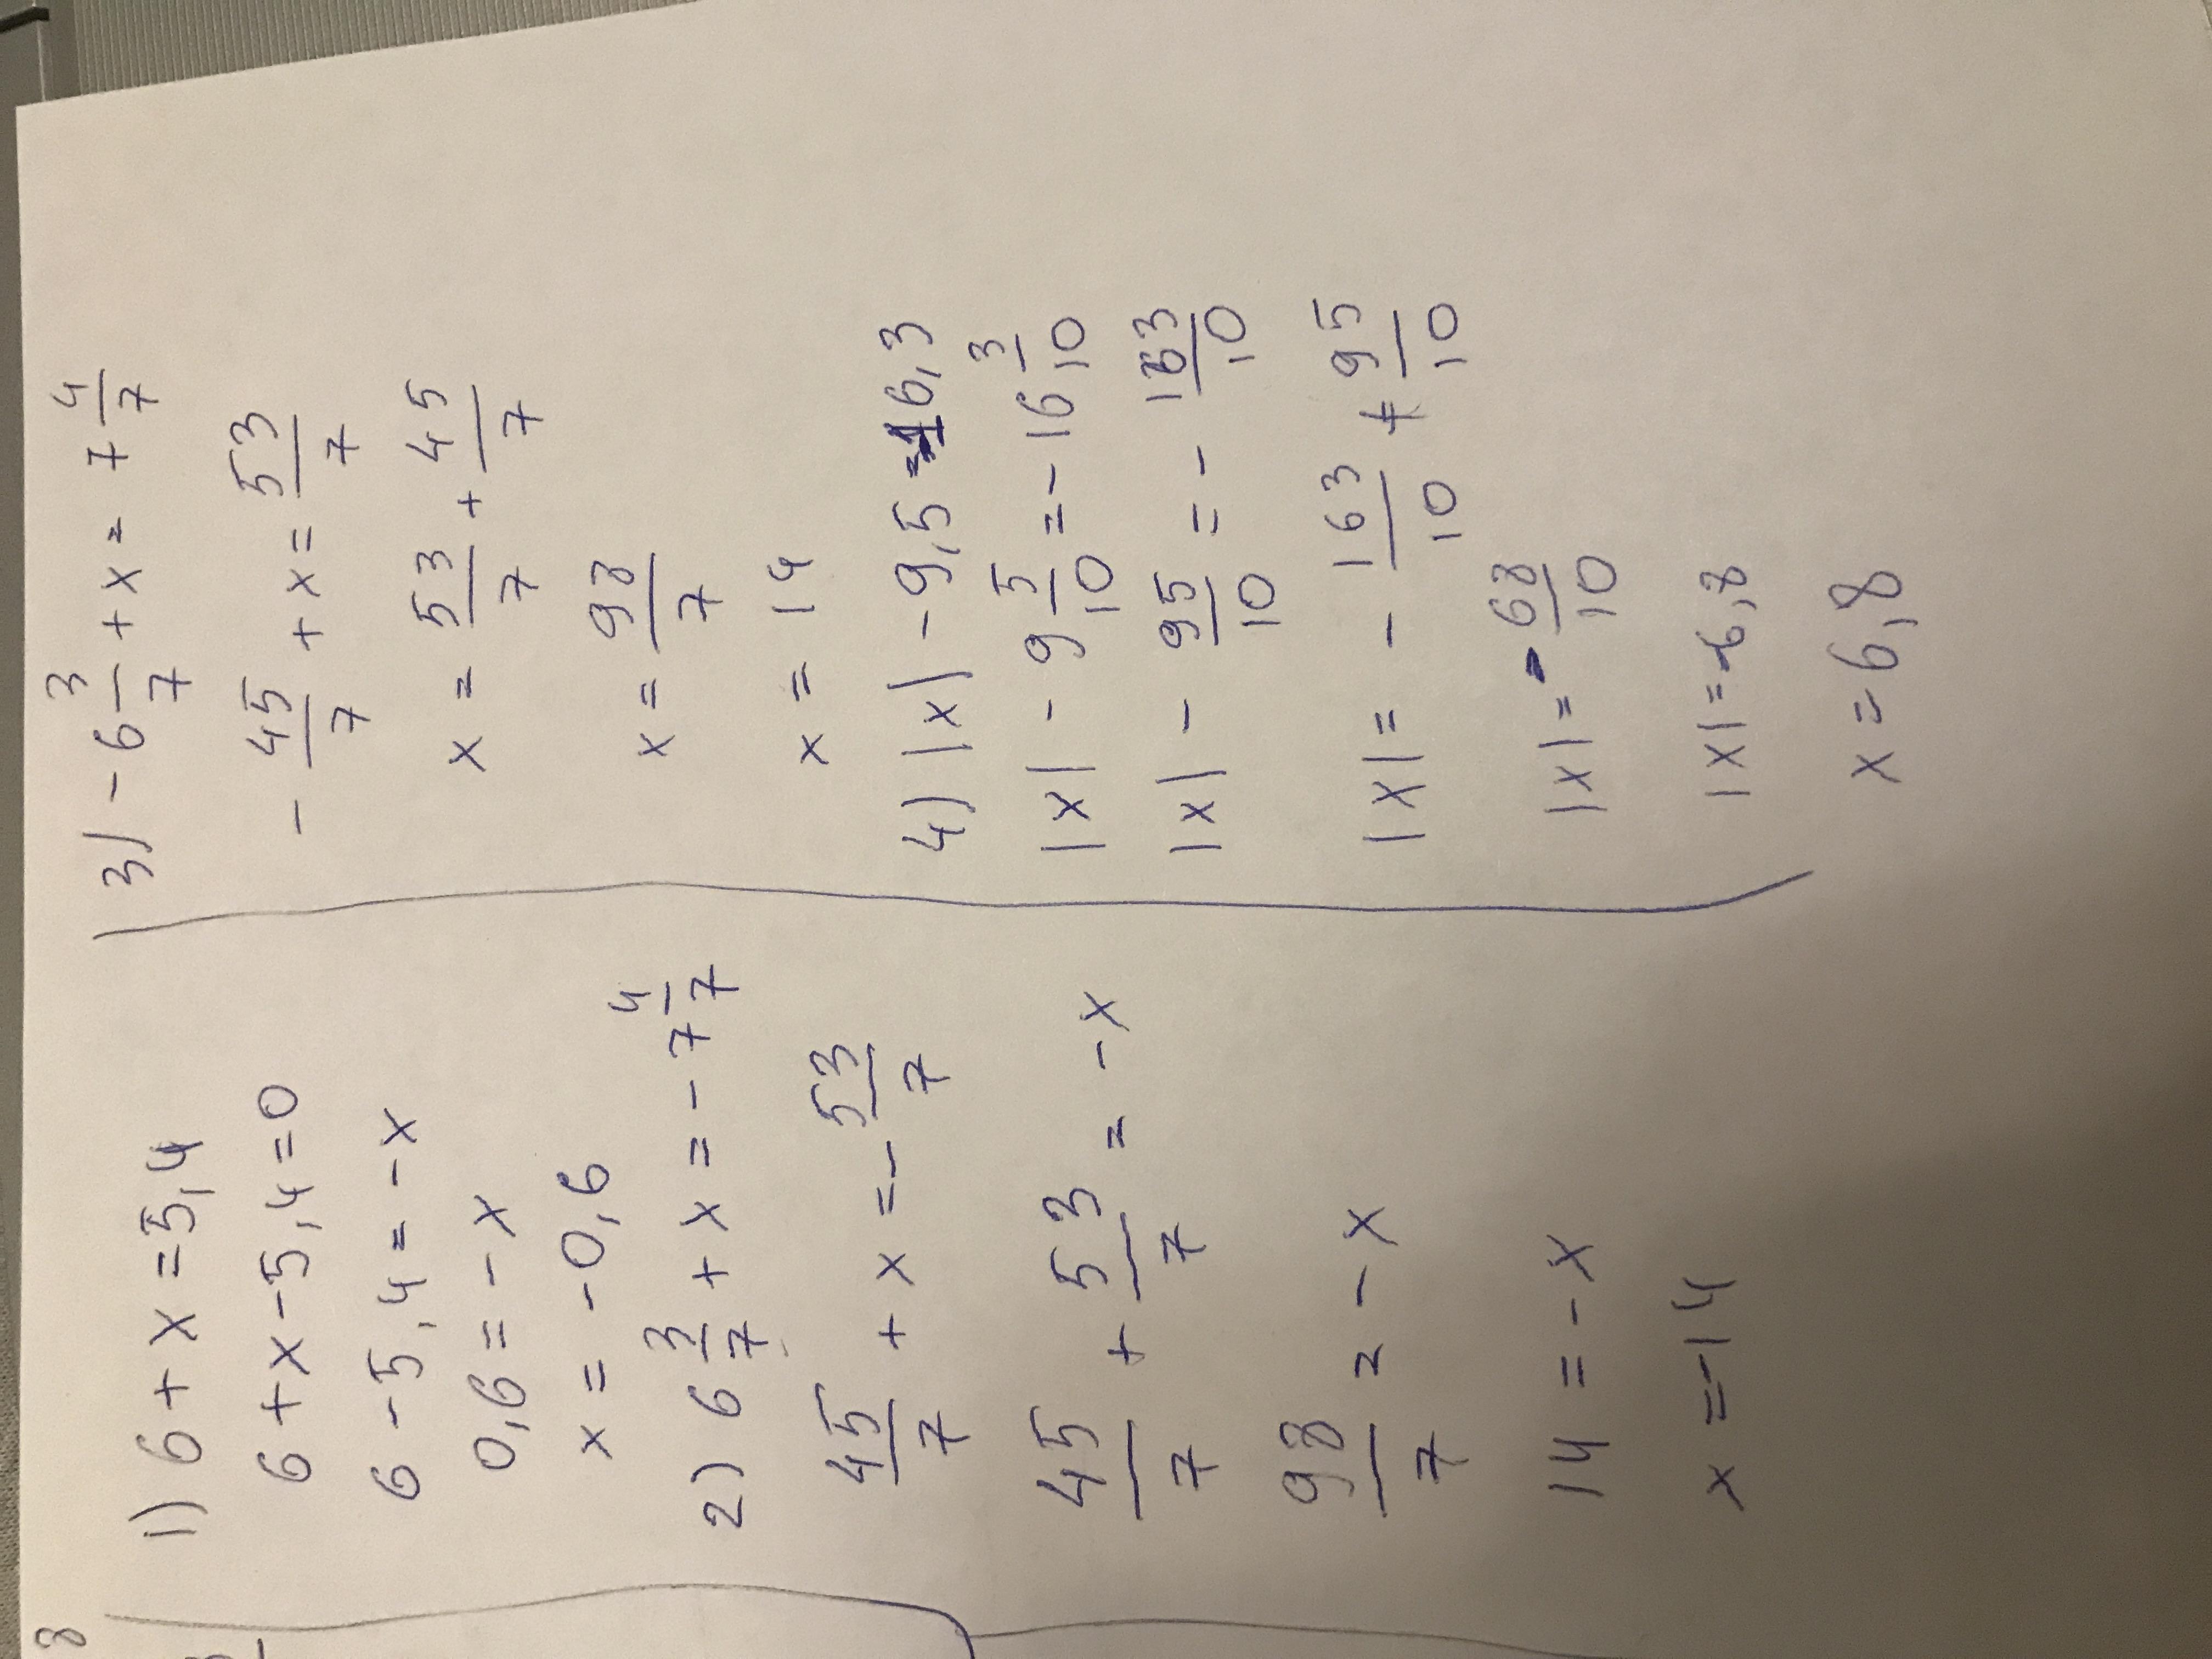 1) 6 + x = 5,4
6 + x - 5,4 = 0
6 - 5,4 = -x
0,6 = -x
x = -0,6
2) 6 3/7 + x = -7 4/7
45/7 + x = - 53/7
45/7 + 53/7 = -x
98/7 = -x
14 = -x
x = -14
3) -6 3/7 + x = 7 4/7
- 45/7 + x = 53/7
x = 53/7 + 45/7
x = 98/7
x = 14
4) |x| - 9,5 = -16,3
|x| - 9 5/10 = -16 3/10
|x| - 95/10 = - 163/10
|x| = - 163/10 + 95/10
|x| = - 68/10
|x| = -6,8
x = 6,8
8